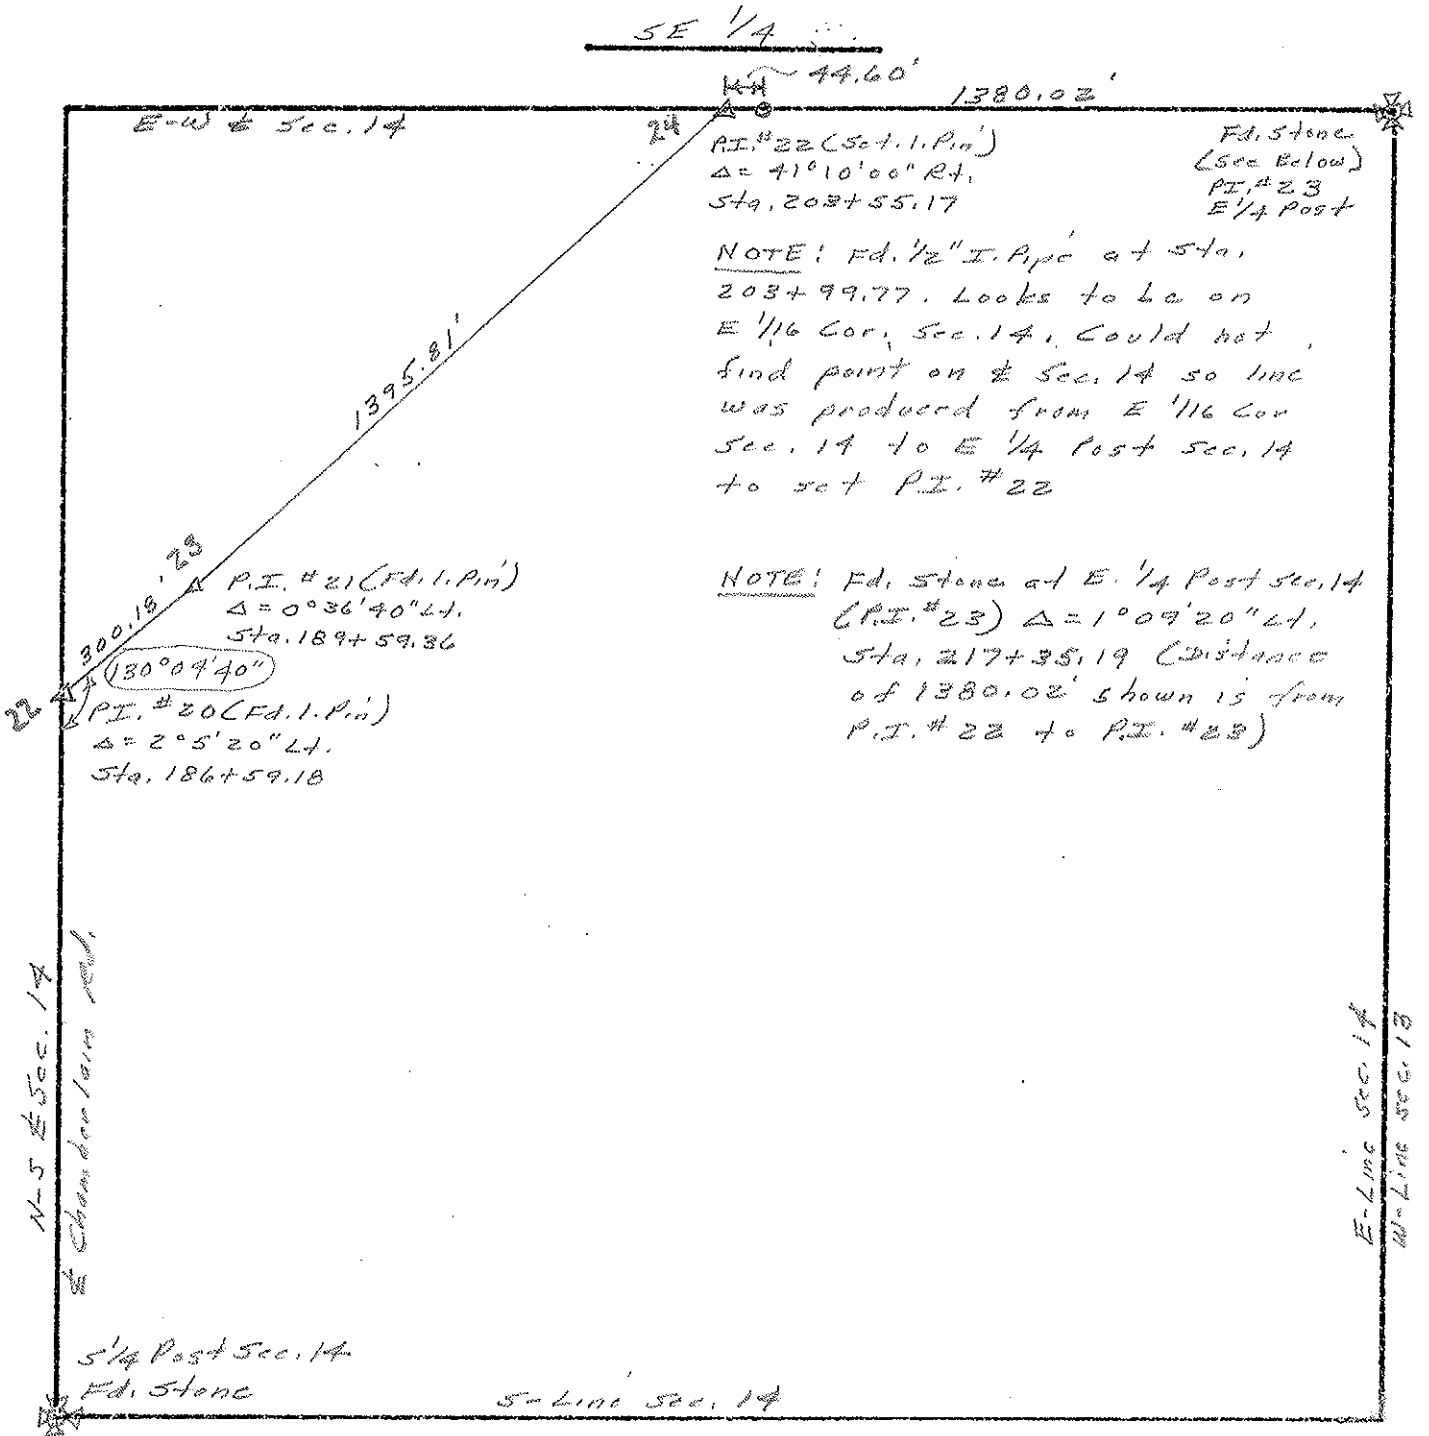 SE 1/4
44.60'
1380.02'
E-W ℄ Sec. 14
24
P.I. #22 (Set. I. Pin)
Δ = 41°10'00" Rt.
Sta. 203+55.17
Fd. Stone
(See Below)
P.I. #23
E 1/4 Post
NOTE: Fd. 1/2" I. Pipe at Sta.
203+99.77. Looks to be on
E 1/16 Cor. Sec. 14. Could not
find point on ℄ Sec. 14 so line
was produced from E 1/16 Cor
Sec. 14 to E 1/4 Post Sec. 14
to set P.I. #22
1395.81'
23
P.I. #21 (Fd. I. Pin)
Δ = 0°36'40" Lt.
Sta. 189+59.36
300.18'
130°04'40"
22
P.I. #20 (Fd. I. Pin)
Δ = 2°5'20" Lt.
Sta. 186+59.18
NOTE: Fd. Stone at E. 1/4 Post Sec. 14
(P.I. #23) Δ = 1°09'20" Lt.
Sta. 217+35.19 (Distance
of 1380.02' shown is from
P.I. #22 to P.I. #23)
N-S ℄ Sec. 14
℄ Chamberlain Rd.
E-Line Sec. 14
W-Line Sec. 13
S 1/4 Post Sec. 14
Fd. Stone
S-Line Sec. 14